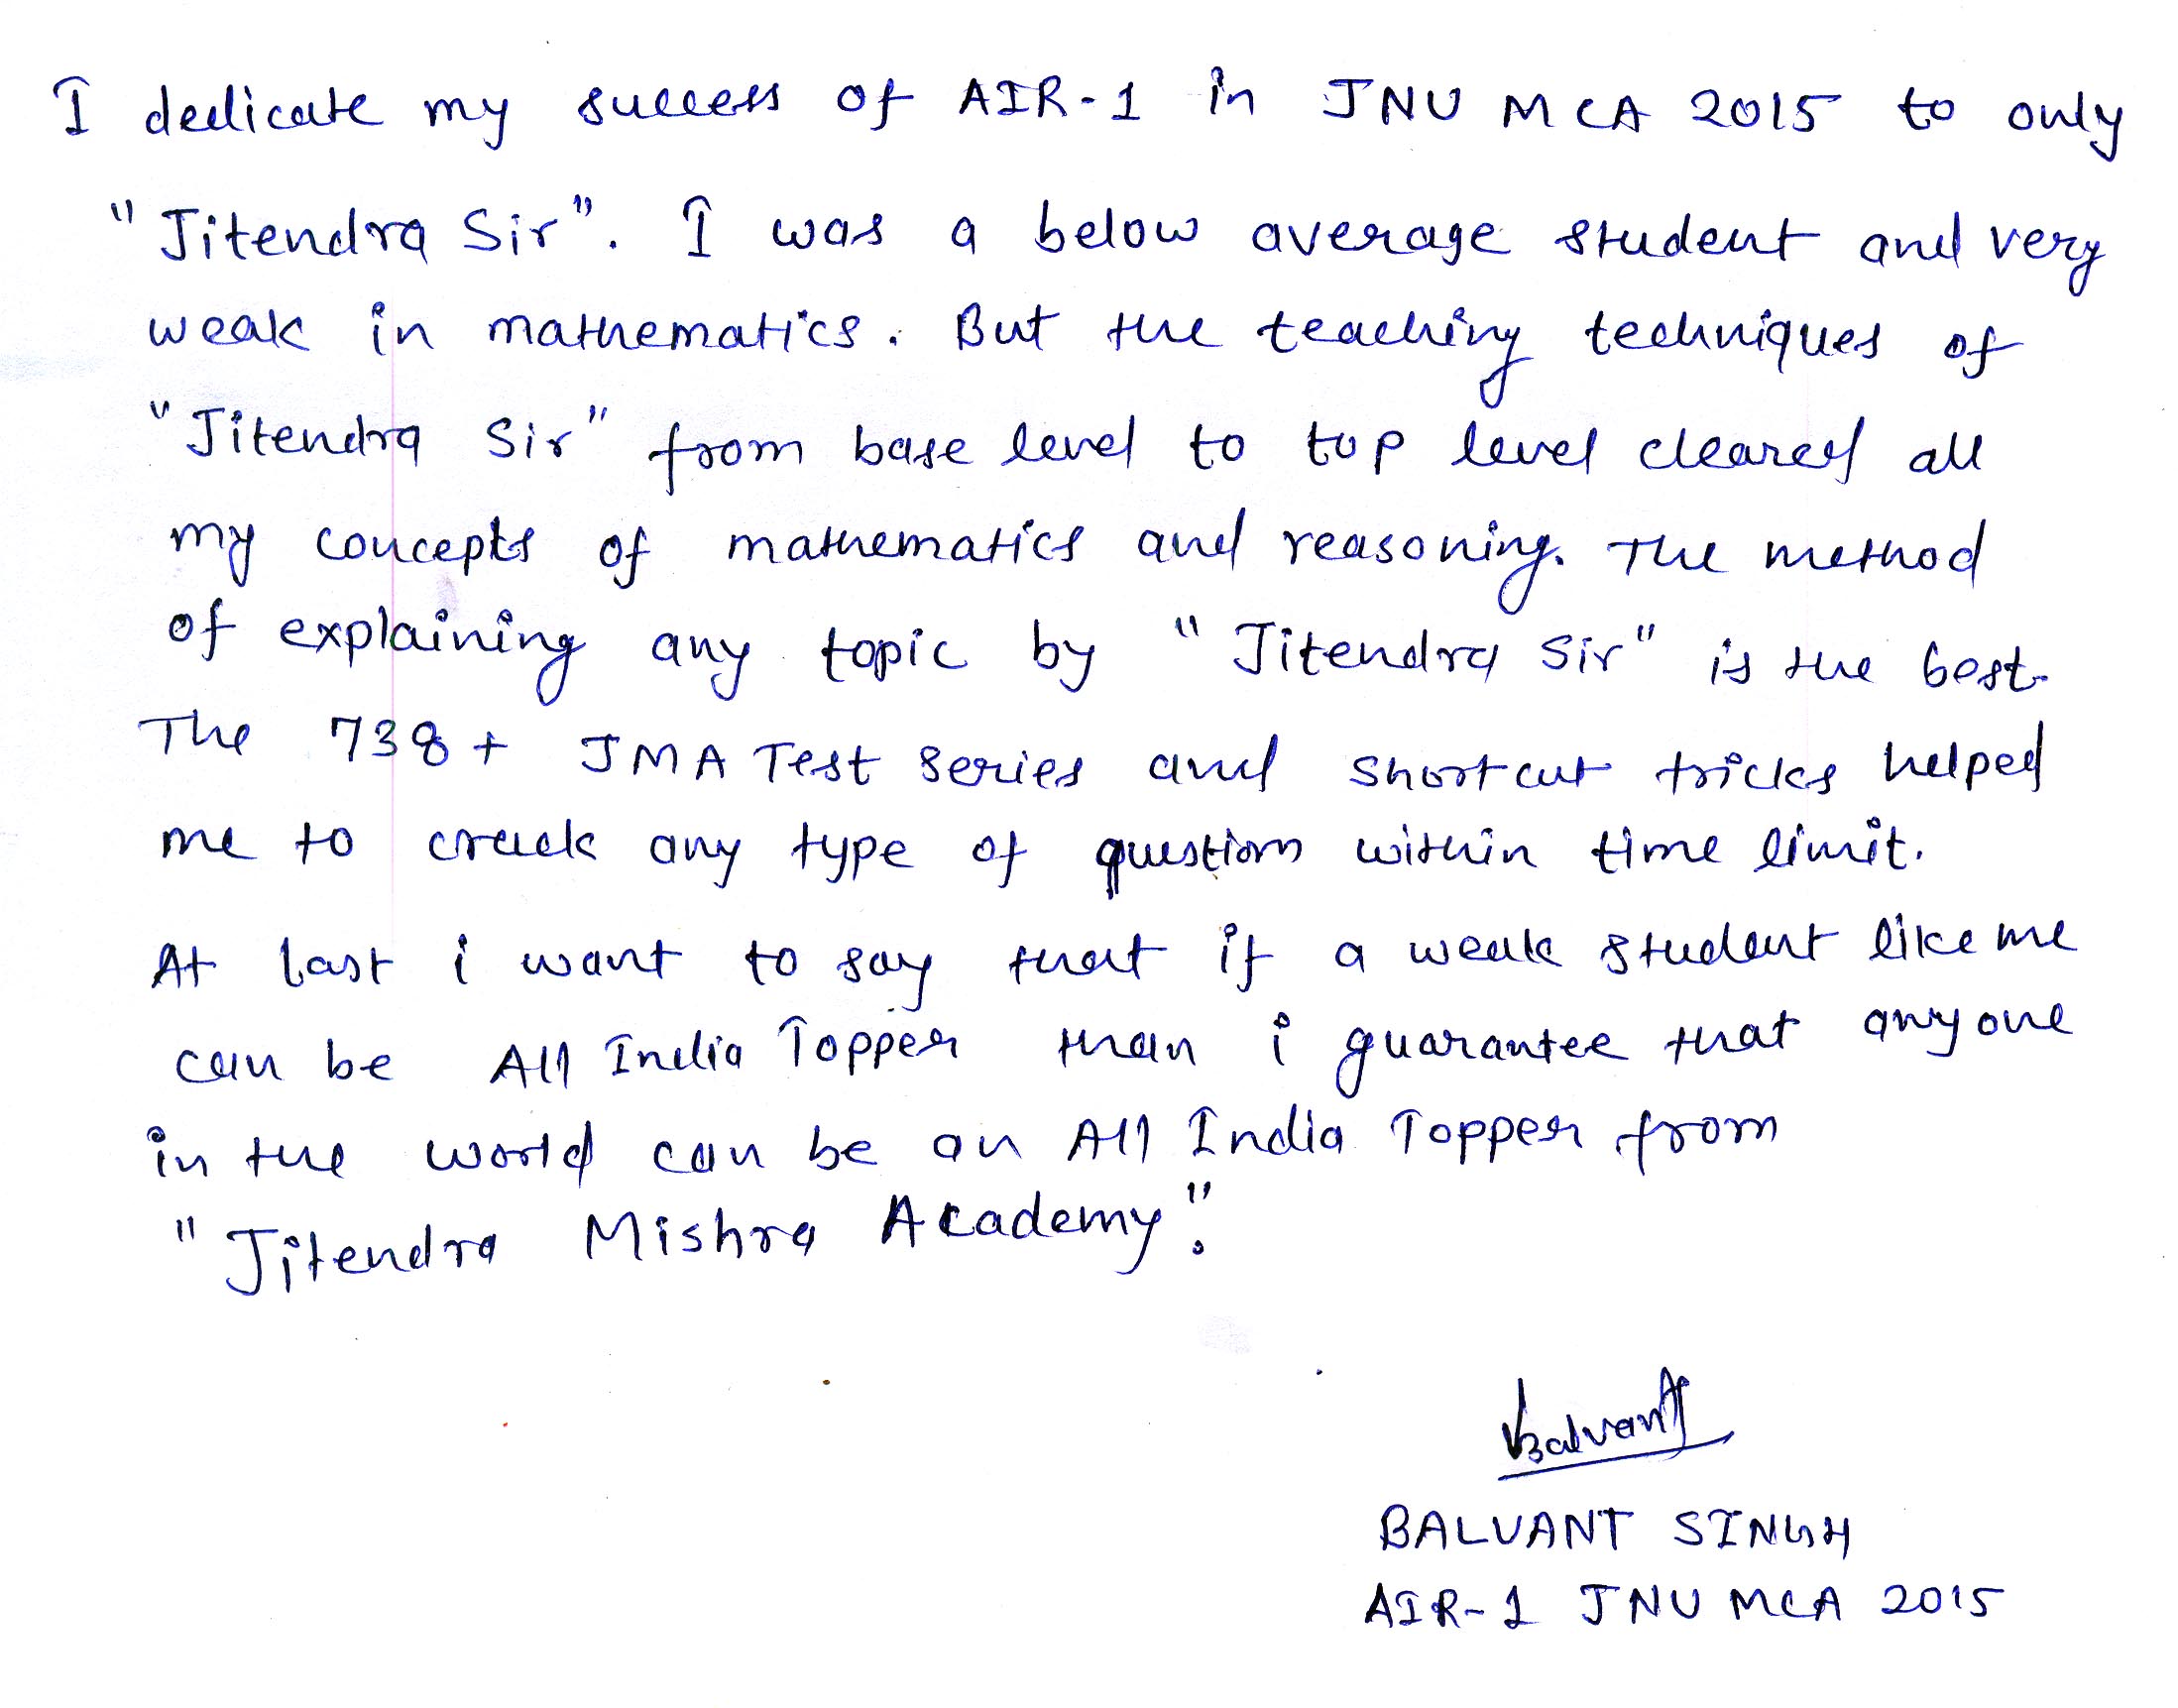 I dedicate my success of AIR-1 in JNU MCA 2015 to only
"Jitendra Sir". I was a below average student and very
weak in mathematics. But the teaching techniques of
"Jitendra Sir" from base level to top level cleared all
my concepts of mathematics and reasoning. The method
of explaining any topic by "Jitendra Sir" is the best.
The 738+ JMA Test Series and shortcut tricks helped
me to crack any type of question within time limit.
At last i want to say that if a weak student like me
can be All India Topper than i guarantee that anyone
in the world can be an All India Topper from
"Jitendra Mishra Academy".
Balvant
BALVANT SINGH
AIR-1 JNU MCA 2015